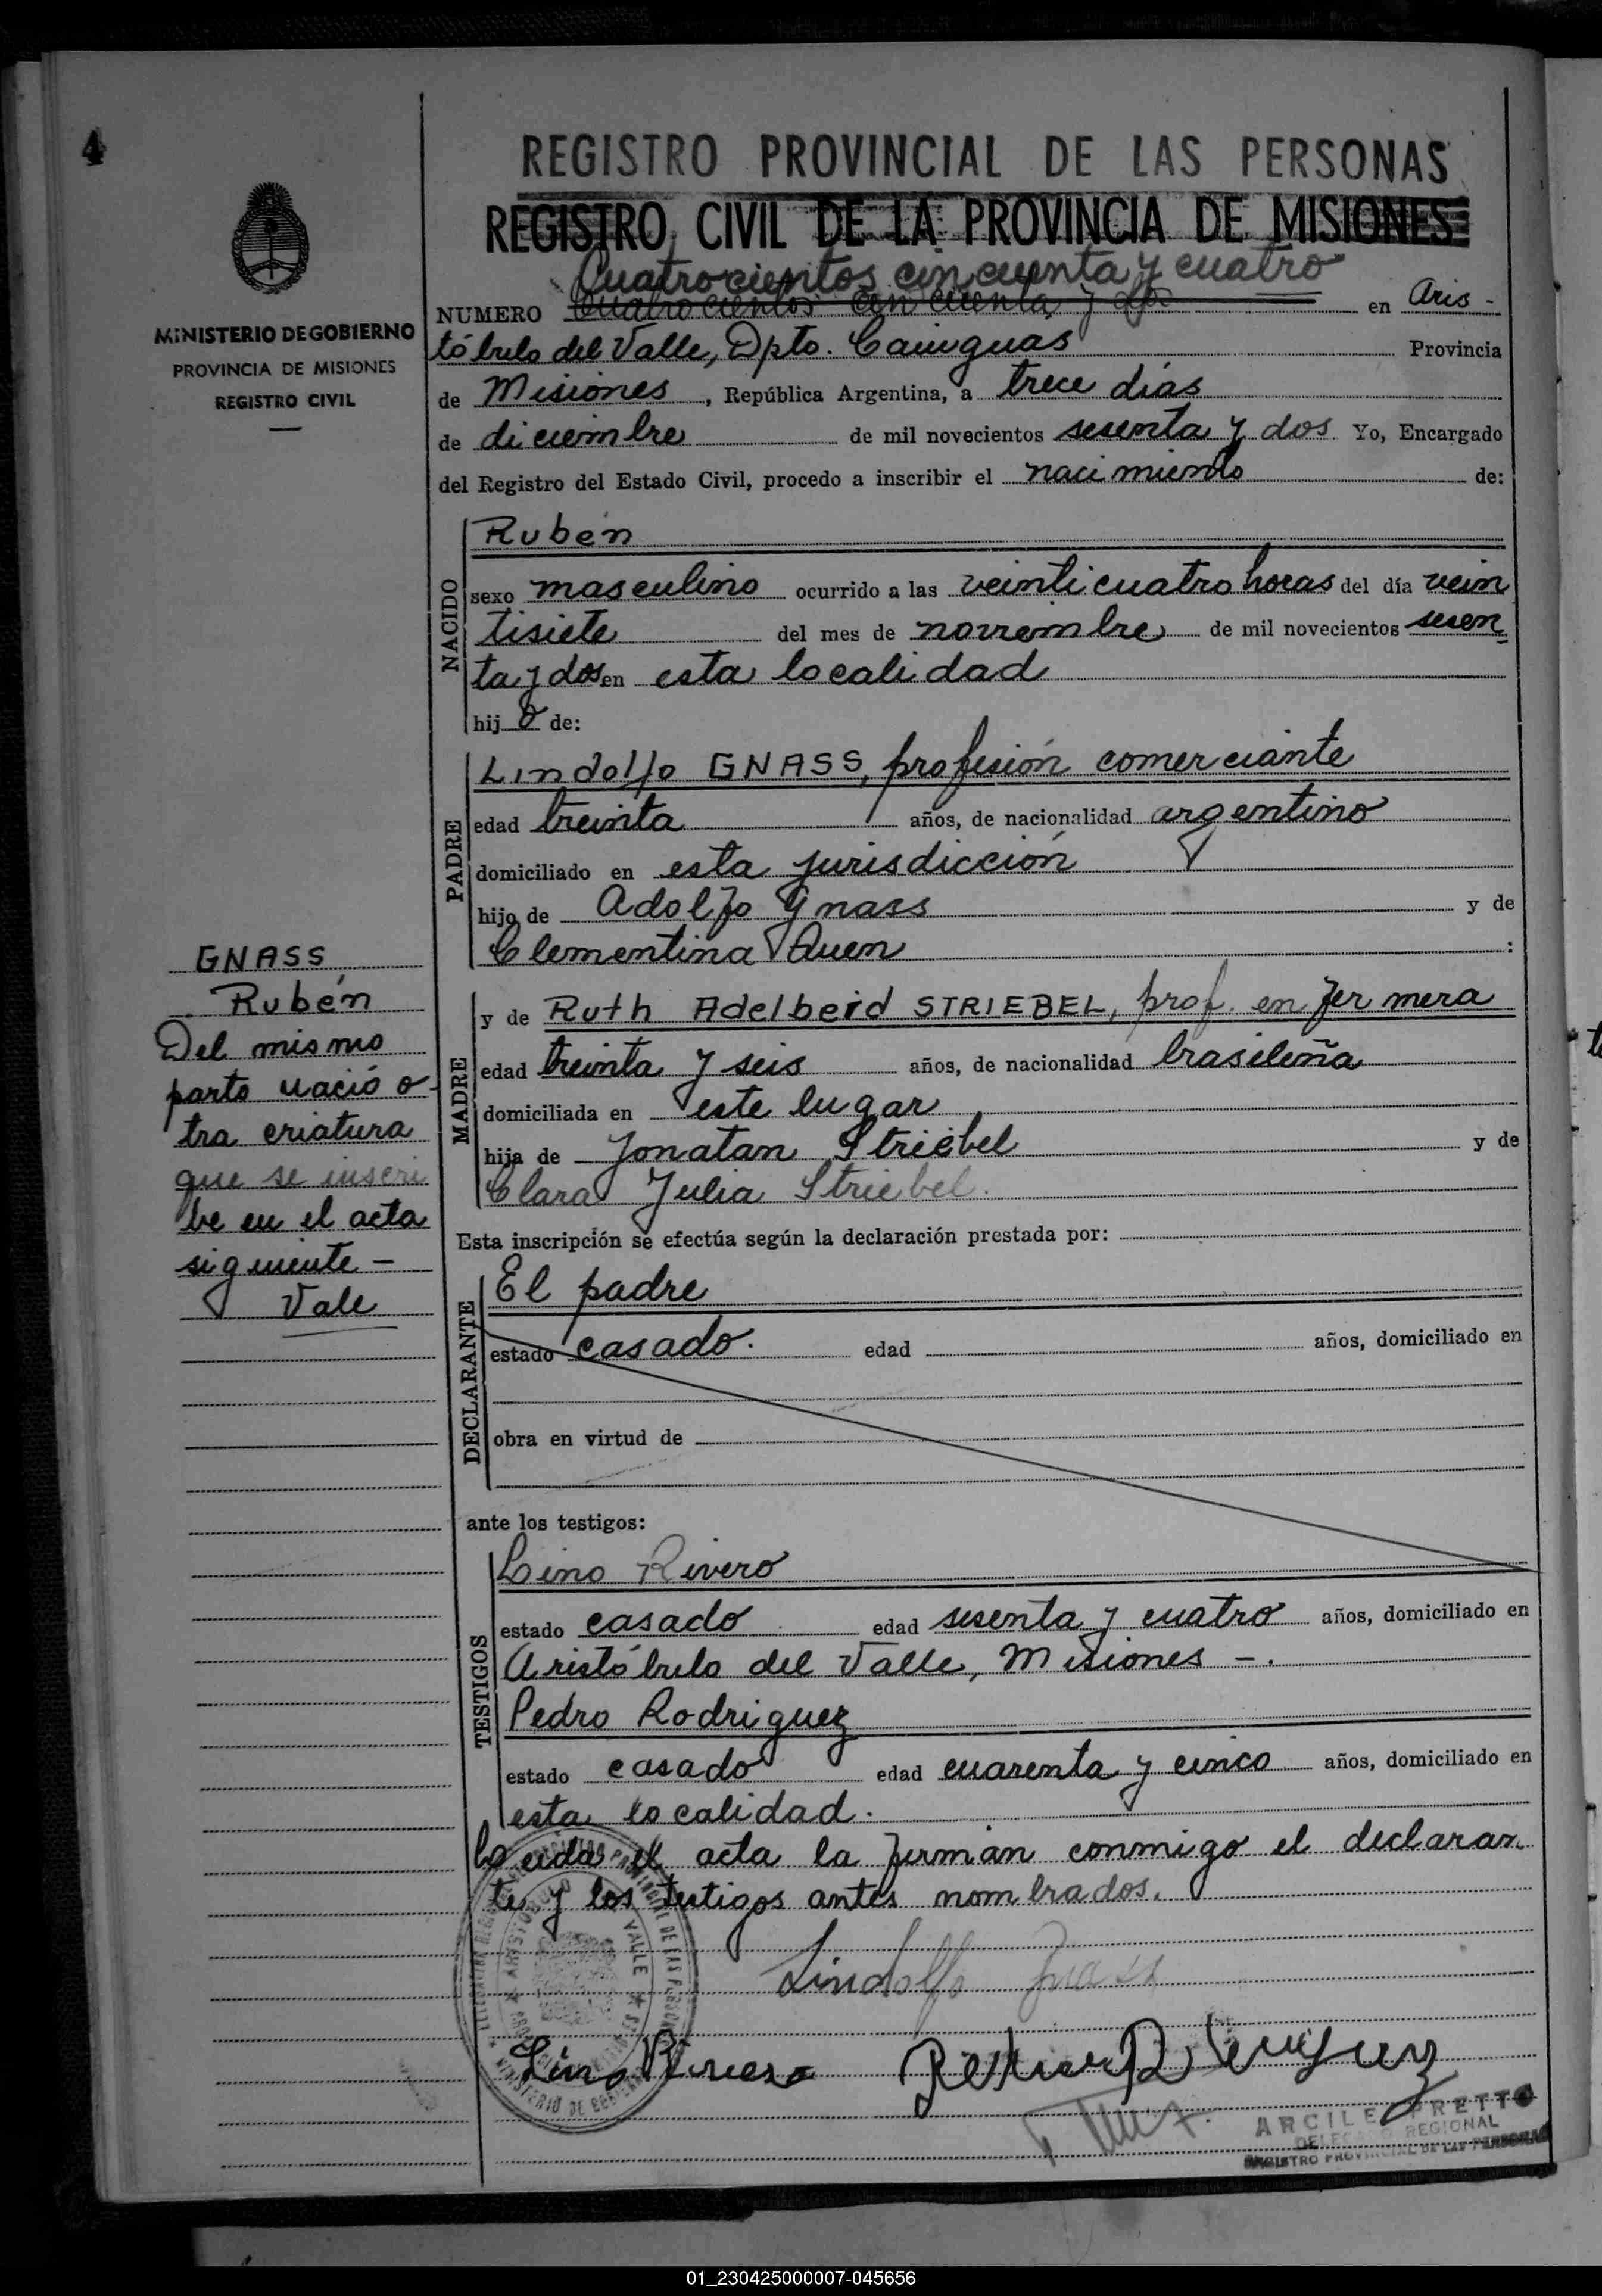 4
REGISTRO PROVINCIAL DE LAS PERSONAS
REGISTRO CIVIL DE LA PROVINCIA DE MISIONES
Cuatrocientos cincuenta y cuatro
NUMERO Cuatrocientos cincuenta y dos en Aris-
tóbulo del Valle, Dpto. Cainguás Provincia
de Misiones, República Argentina, a trece días
de diciembre de mil novecientos sesenta y dos Yo, Encargado
del Registro del Estado Civil, procedo a inscribir el nacimiento de:
MINISTERIO DE GOBIERNO
PROVINCIA DE MISIONES
REGISTRO CIVIL
NACIDO
Rubén
sexo masculino ocurrido a las veinticuatro horas del día vein
tisiete del mes de noviembre de mil novecientos sesen
ta y dos en esta localidad
hijo de:
PADRE
Lindolfo GNASS, profesión comerciante
edad treinta años, de nacionalidad argentino
domiciliado en esta jurisdicción
hijo de Adolfo Gnass y de
Clementina Auen :
MADRE
y de Ruth Adelbeid STRIEBEL, prof. enfermera
edad treinta y seis años, de nacionalidad brasileña
domiciliada en este lugar
hija de Jonatan Striebel y de
Clara Julia Striebel.
GNASS
Rubén
Del mismo
parto nació o-
tra criatura
que se inscri
be en el acta
siguiente -
Vale
Esta inscripción se efectúa según la declaración prestada por:
DECLARANTE
El padre
estado casado. edad años, domiciliado en
obra en virtud de
ante los testigos:
TESTIGOS
Lino Rivero
estado casado edad sesenta y cuatro años, domiciliado en
Aristóbulo del Valle, Misiones -.
Pedro Rodriguez
estado casado edad cuarenta y cinco años, domiciliado en
esta localidad.
Leida el acta la firman conmigo el declaran
te y los testigos antes nombrados.
Lindolfo Gnass
ARISTOBULO VALLE
Lino Rivero
ARCILE PRETTO
DELEGADO REGIONAL
REGISTRO PROVINCIAL DE LAS PERSONAS
01_230425000007-045656